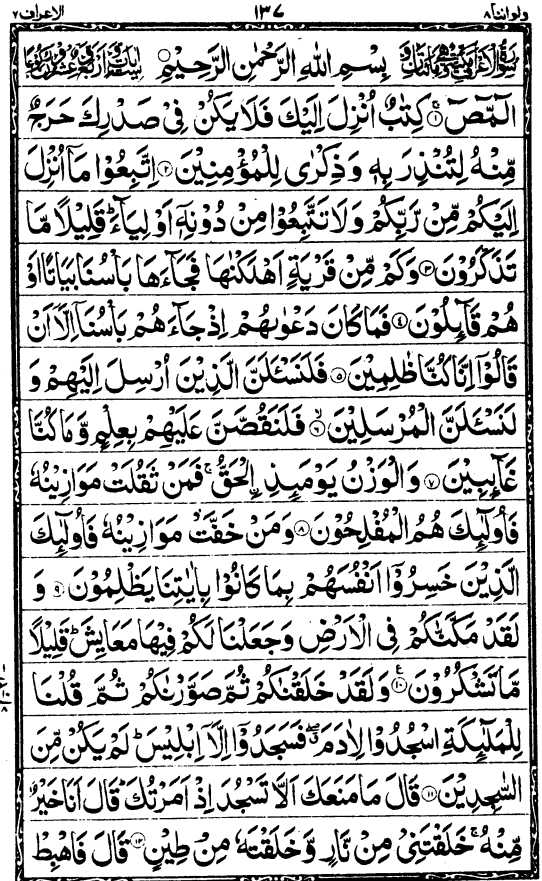 ولواننا ٨
١٣٧
الاعراف ٧
بِسْمِ اللهِ الرَّحْمٰنِ الرَّحِيْمِ
الٓمّٓصٓ ۚ﴿١﴾ كِتٰبٌ اُنْزِلَ اِلَيْكَ فَلَا يَكُنْ فِيْ صَدْرِكَ حَرَجٌ
مِّنْهُ لِتُنْذِرَ بِهٖ وَذِكْرٰى لِلْمُؤْمِنِيْنَ ﴿٢﴾ اِتَّبِعُوْا مَآ اُنْزِلَ
اِلَيْكُمْ مِّنْ رَّبِّكُمْ وَلَا تَتَّبِعُوْا مِنْ دُوْنِهٖٓ اَوْلِيَآءَ ؕ قَلِيْلًا مَّا
تَذَكَّرُوْنَ ﴿٣﴾ وَكَمْ مِّنْ قَرْيَةٍ اَهْلَكْنٰهَا فَجَآءَهَا بَاْسُنَا بَيَاتًا اَوْ
هُمْ قَآئِلُوْنَ ﴿٤﴾ فَمَا كَانَ دَعْوٰىهُمْ اِذْ جَآءَهُمْ بَاْسُنَآ اِلَّآ اَنْ
قَالُوْٓا اِنَّا كُنَّا ظٰلِمِيْنَ ﴿٥﴾ فَلَنَسْـَٔلَنَّ الَّذِيْنَ اُرْسِلَ اِلَيْهِمْ وَ
لَنَسْـَٔلَنَّ الْمُرْسَلِيْنَ ۙ﴿٦﴾ فَلَنَقُصَّنَّ عَلَيْهِمْ بِعِلْمٍ وَّمَا كُنَّا
غَآئِبِيْنَ ﴿٧﴾ وَالْوَزْنُ يَوْمَئِذِ ِۨالْحَقُّ ۚ فَمَنْ ثَقُلَتْ مَوَازِيْنُهٗ
فَاُولٰٓئِكَ هُمُ الْمُفْلِحُوْنَ ﴿٨﴾ وَمَنْ خَفَّتْ مَوَازِيْنُهٗ فَاُولٰٓئِكَ
الَّذِيْنَ خَسِرُوْٓا اَنْفُسَهُمْ بِمَا كَانُوْا بِاٰيٰتِنَا يَظْلِمُوْنَ ﴿٩﴾ وَ
لَقَدْ مَكَّنّٰكُمْ فِي الْاَرْضِ وَجَعَلْنَا لَكُمْ فِيْهَا مَعَايِشَ ؕ قَلِيْلًا
مَّا تَشْكُرُوْنَ ﴿١٠﴾ وَلَقَدْ خَلَقْنٰكُمْ ثُمَّ صَوَّرْنٰكُمْ ثُمَّ قُلْنَا
لِلْمَلٰٓئِكَةِ اسْجُدُوْا لِاٰدَمَ ۖ فَسَجَدُوْٓا اِلَّآ اِبْلِيْسَ ؕ لَمْ يَكُنْ مِّنَ
السّٰجِدِيْنَ ﴿١١﴾ قَالَ مَا مَنَعَكَ اَلَّا تَسْجُدَ اِذْ اَمَرْتُكَ ؕ قَالَ اَنَا خَيْرٌ
مِّنْهُ ۚ خَلَقْتَنِيْ مِنْ نَّارٍ وَّخَلَقْتَهٗ مِنْ طِيْنٍ ﴿١٢﴾ قَالَ فَاهْبِطْ